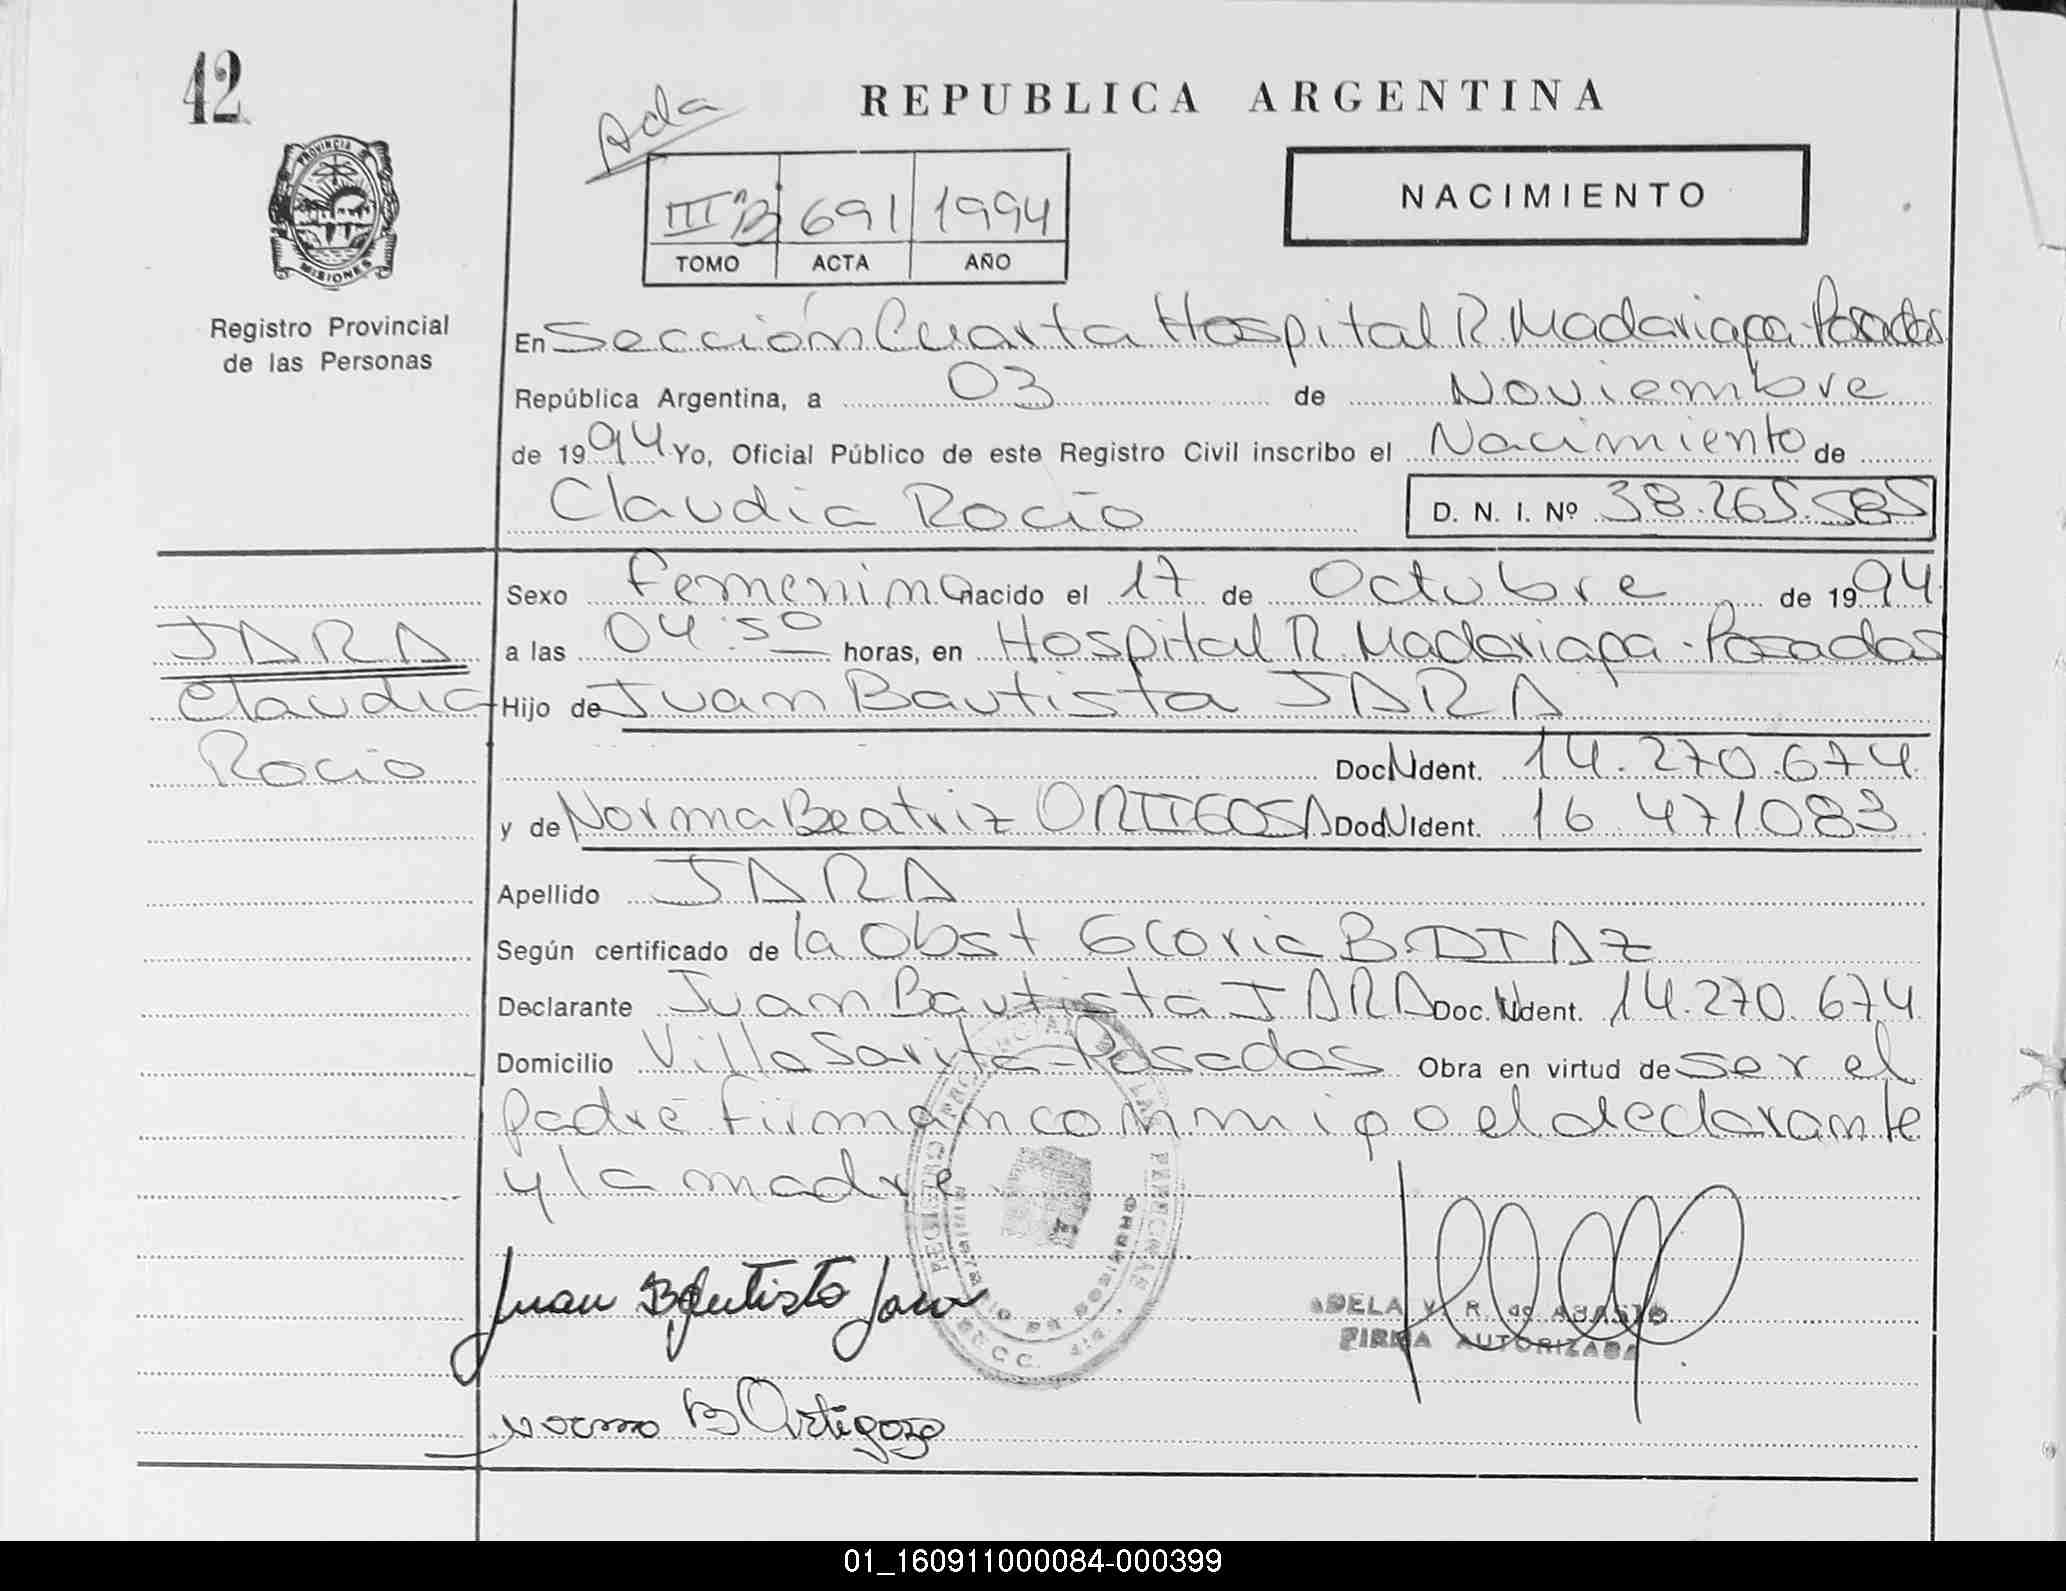 42
Ada
REPUBLICA ARGENTINA
NACIMIENTO
III "B" 691 1994
TOMO ACTA AÑO
PROVINCIA DE
MISIONES
Registro Provincial
de las Personas
En Sección Cuarta Hospital R. Madariaga - Posadas
República Argentina, a 03 de Noviembre
de 1994 Yo, Oficial Público de este Registro Civil inscribo el Nacimiento de
Claudia Rocío D. N. I. Nº 38.265.585
Sexo Femenino nacido el 17 de Octubre de 1994
JARA a las 04:50 horas, en Hospital R. Madariaga - Posadas
Claudia Hijo de Juan Bautista JARA
Rocío Doc. N Ident. 14.270.674
y de Norma Beatriz ORTIGOSA Doc N Ident. 16.471083
Apellido JARA
Según certificado de la Obst Gloria B. DIAZ
Declarante Juan Bautista JARA Doc. N Ident. 14.270.674
Domicilio Villa Sarita - Posadas Obra en virtud de ser el
padre firman conmigo el declarante
y la madre
Juan Bautista Jara
ADELA V. R. de ABASTO
FIRMA AUTORIZADA
Norma B Ortigoza
01_160911000084-000399